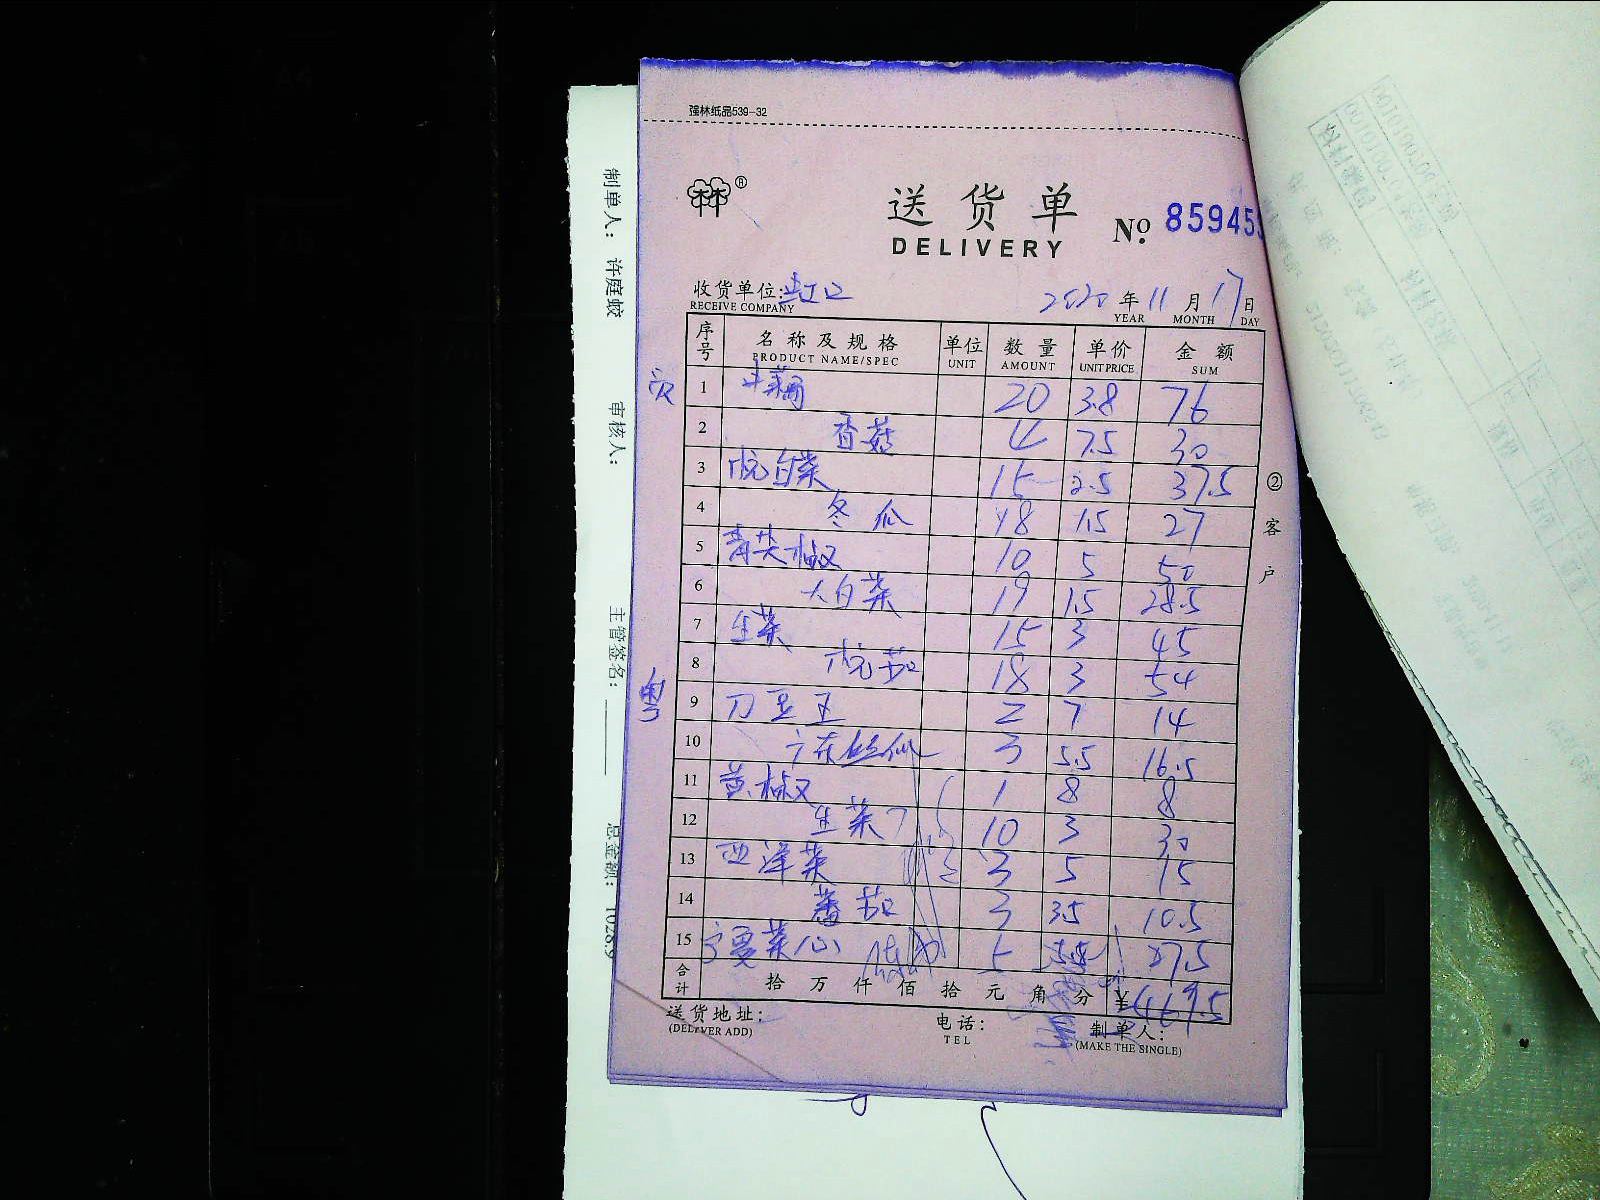 强林纸品539-32
林®
送货单
DELIVERY
№ 859455
收货单位:虹口
RECEIVE COMPANY
2020年11月17日
YEAR MONTH DAY
序号 名称及规格 单位 数量 单价 金额
PRODUCT NAME/SPEC UNIT AMOUNT UNIT PRICE SUM
1 20 3.8 76
2 香菇 4 7.5 30
3 杭白菜 15 2.5 37.5
4 冬瓜 18 1.5 27
5 青尖椒 10 5 50
6 大白菜 19 1.5 28.5
7 生菜 15 3 45
8 杭茄 18 3 54
粤
9 刀豆 2 7 14
10 广东丝瓜 3 5.5 16.5
11 黄椒 1 8 8
12 生菜 10 3 30
13 西洋菜 3 5 15
14 蕃茄 3 3.5 10.5
15 宁夏菜心 5 5.5 27.5
合计 拾 万 仟 佰 拾 元 角 分 ¥469.5
送货地址:
(DELIVER ADD)
电话:
TEL
制单人:
(MAKE THE SINGLE)
②客户
制单人: 许庭蛟 审核人: 主管签名: 总金额: 1028.9